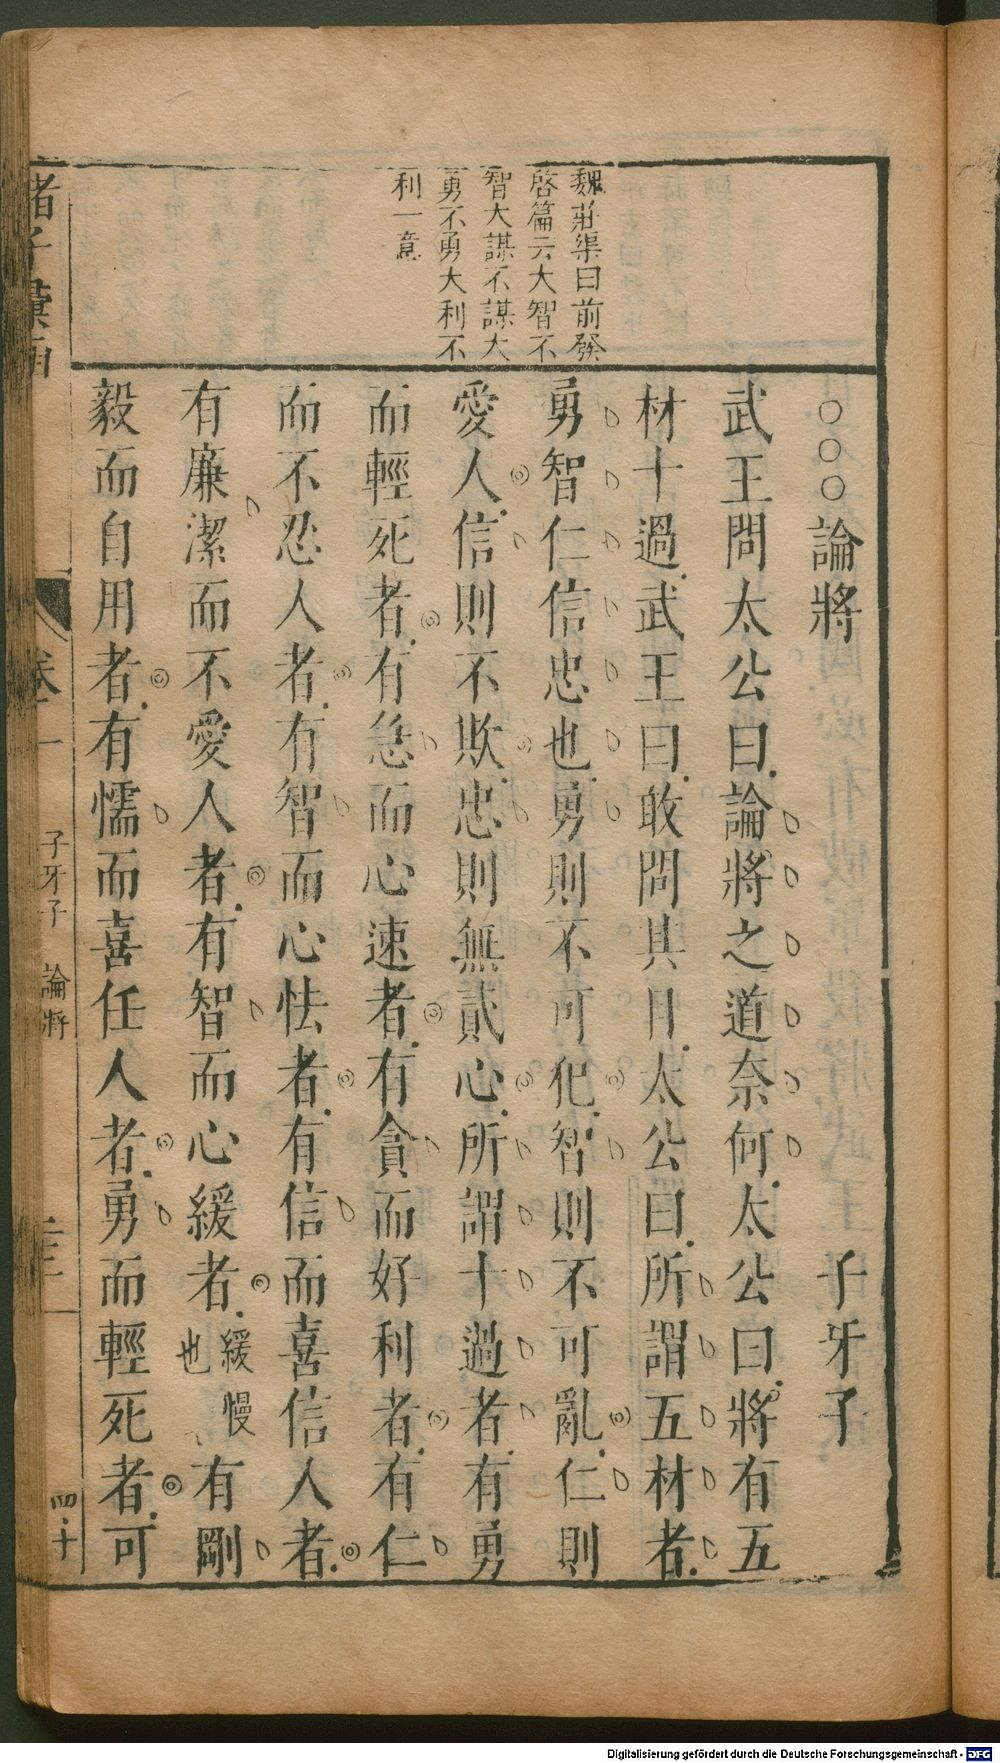 魏莊渠曰前發
啓篇云大智不
智大謀不謀大
勇不勇大利不
利一意
○○○論將 子牙子
武王問太公曰論將之道奈何太公曰將有五
材十過武王曰敢問其目太公曰所謂五材者
勇智仁信忠也勇則不可犯智則不可亂仁則
愛人信則不欺忠則無貳心所謂十過者有勇
而輕死者有急而心速者有貪而好利者有仁
而不忍人者有智而心怯者有信而喜信人者
有廉潔而不愛人者有智而心緩者緩慢也有剛
毅而自用者有懦而喜任人者勇而輕死者可
諸子彙函 卷 一 子牙子 論將 四十
Digitalisierung gefördert durch die Deutsche Forschungsgemeinschaft - DFG